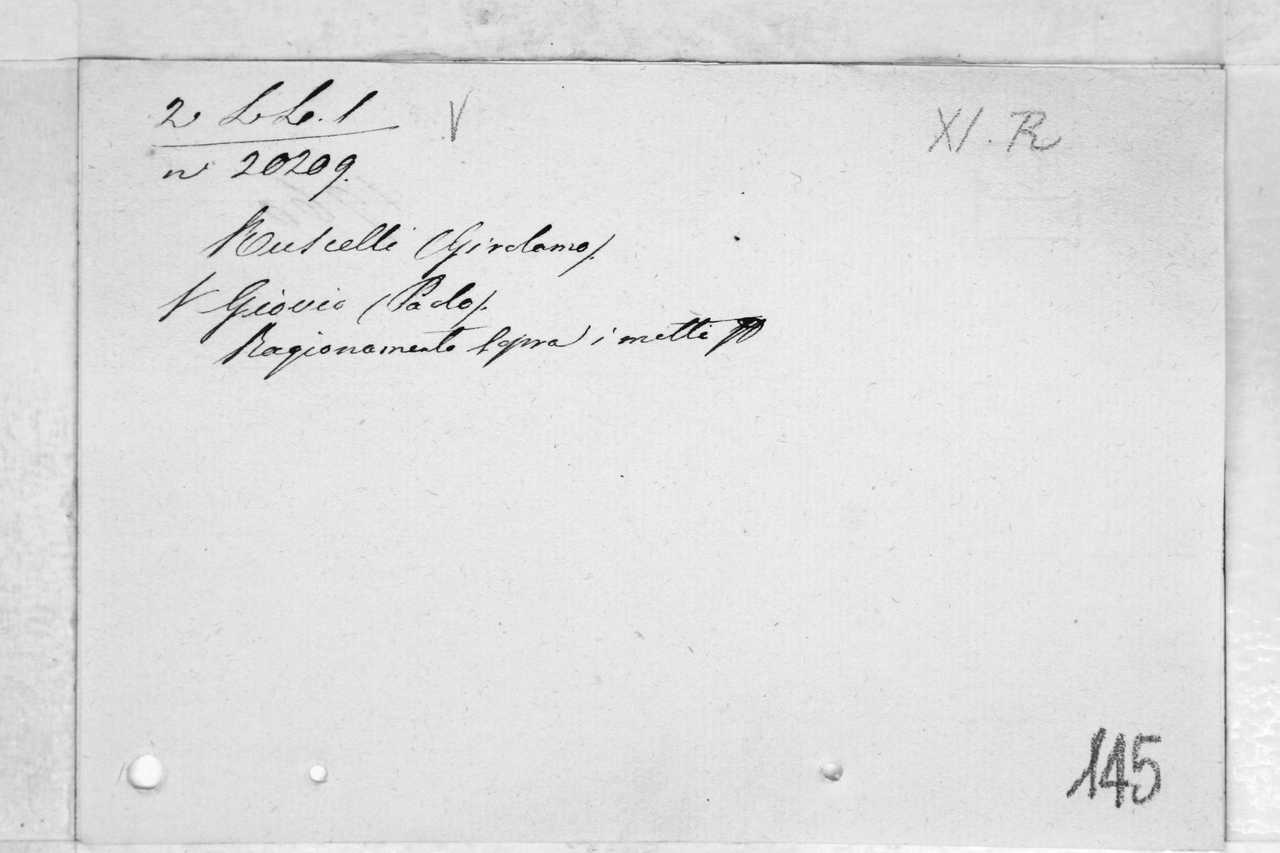 2 L L. 1 V XI. R
n° 20209.
Ruscelli (Girolamo).
V Giovio (Paolo).
Ragionamento sopra i motti
145